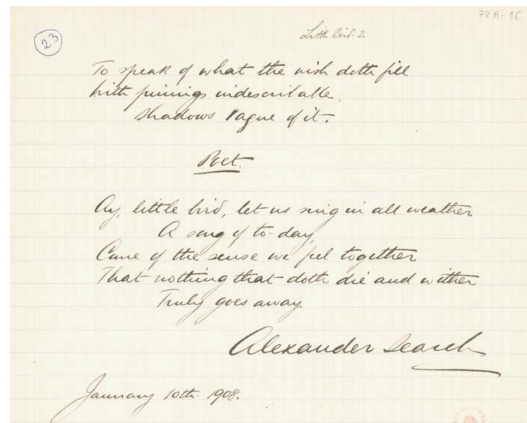 78A-16
23
Little bird. 3.
To speak of what the wish doth fill
With pinings indescribable,
Shadows vague of it.
Poet.
Ay, little bird, let us sing in all weather
A song of to-day,
Came of the sense we feel together
That nothing that doth die and wither
Truly goes away
Alexander Search
January 10th. 1908.